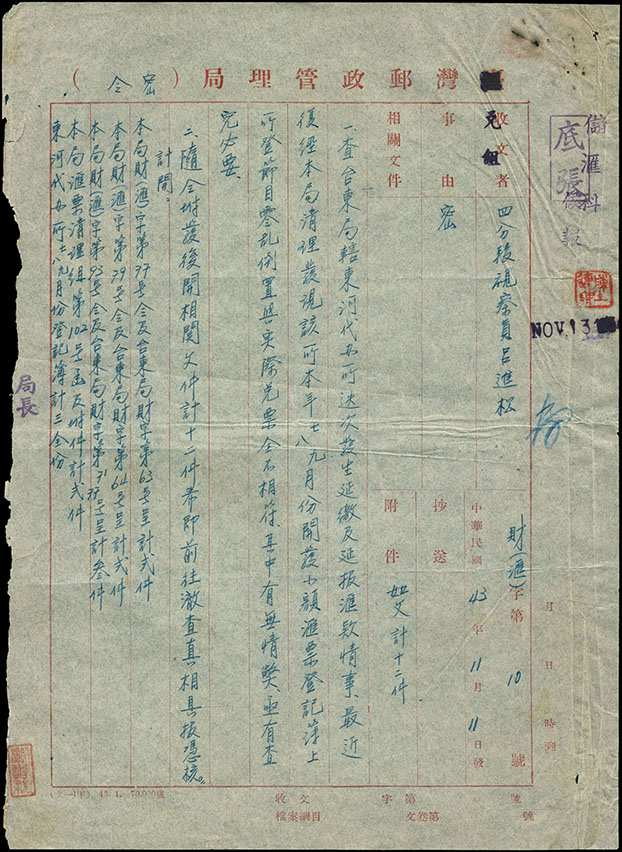 臺灣郵政管理局（密令）
儲匯科
底張
NOV. 13
收文者
四分段視察員呂進松
財(匯)字第10號
月 日 時到
事由
密
相關文件
抄送
附件
如文計十二件
中華民國43年11月11日發
一、查台東局轄東河代办所迭次發生延繳及延报滙欵情事、最近
復經本局清理發現該所本年七八九月份開發小額滙票登記簿上
所登節目零乱倒置與实際兌票全不相符、其中有無情弊亟有查
究必要
二、隨令附發後開相關文件計十二件希即前往澈查真相具报憑核。
計開
本局財(滙)字第77号令及台東局財字第63号呈計弍件
本局財(滙)字第79号令及台東局財字第64号呈計弍件
本局財(滙)字第93号令及台東局財字第71 77号呈計叁件
本局滙票清理組第102号函及附件計弍件
東河代办所七八九月份登記簿計三全份
局長
收文 字第 號
檔案綱目 文卷第 號